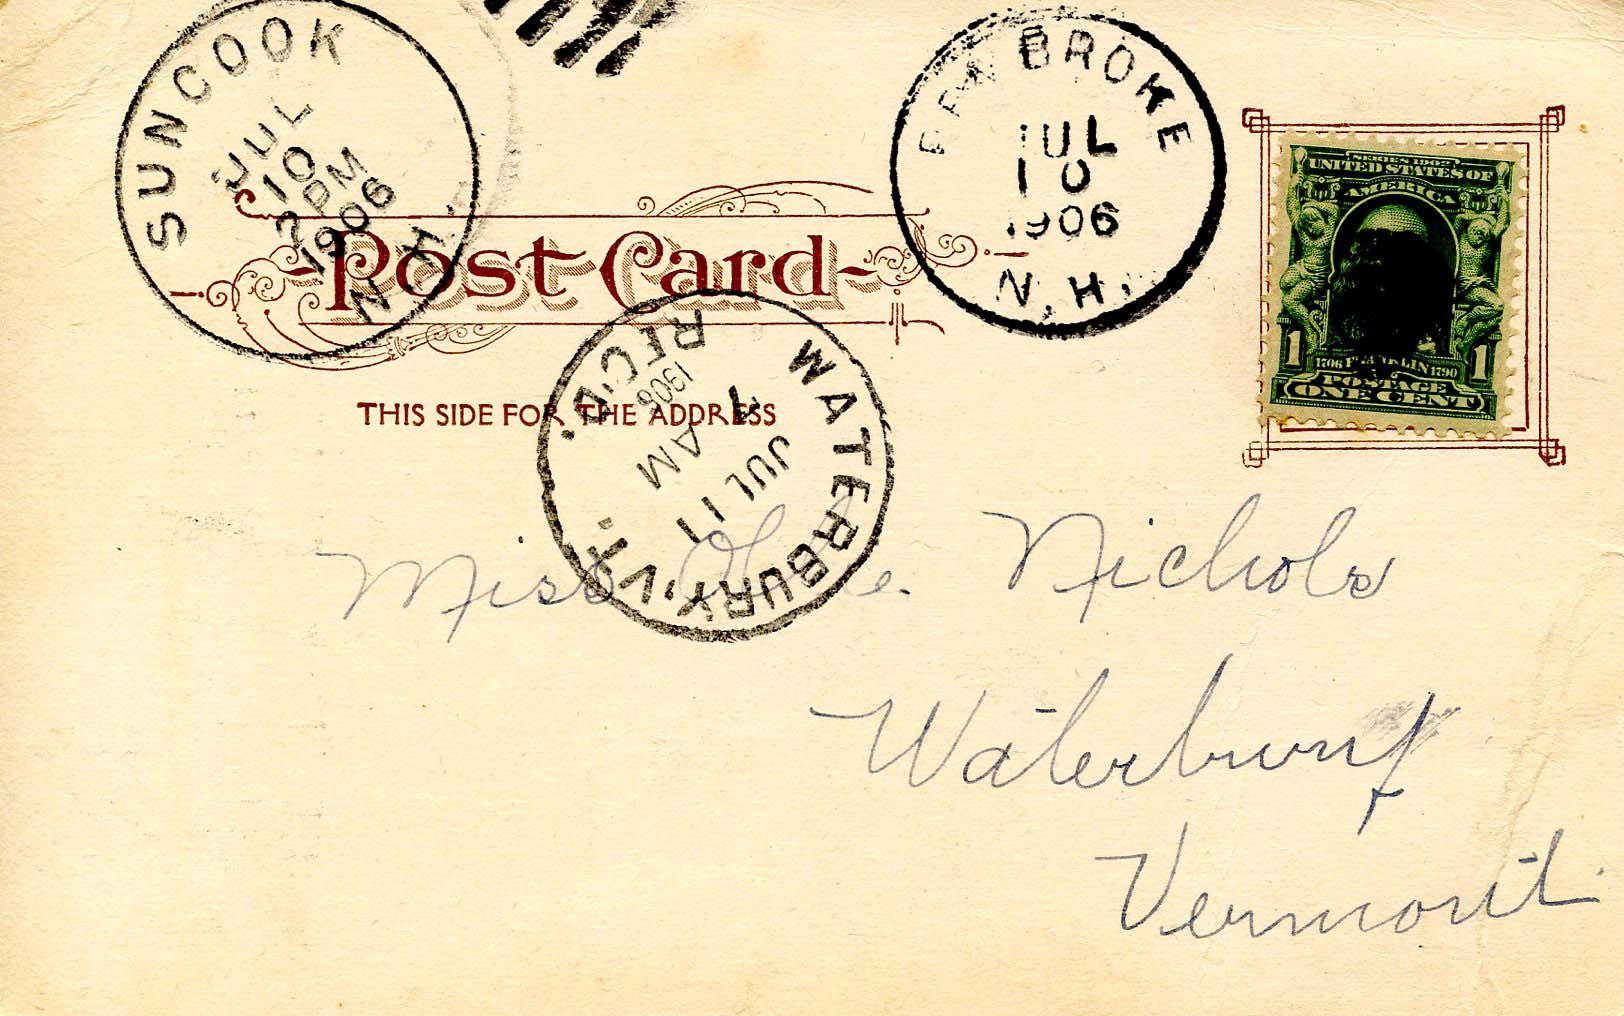 SUNCOOK
JUL
10
2 PM
1906
N.H.
PEMBROKE
JUL
10
1906
N.H.
SERIES 1902
UNITED STATES OF
AMERICA
1 1706 FRANKLIN 1790 1
POSTAGE
ONE CENT
Post Card
THIS SIDE FOR THE ADDRESS
WATERBURY, VT.
REC'D.
1906
7
AM
JUL 11
Miss Nichols
Waterbury
Vermont.